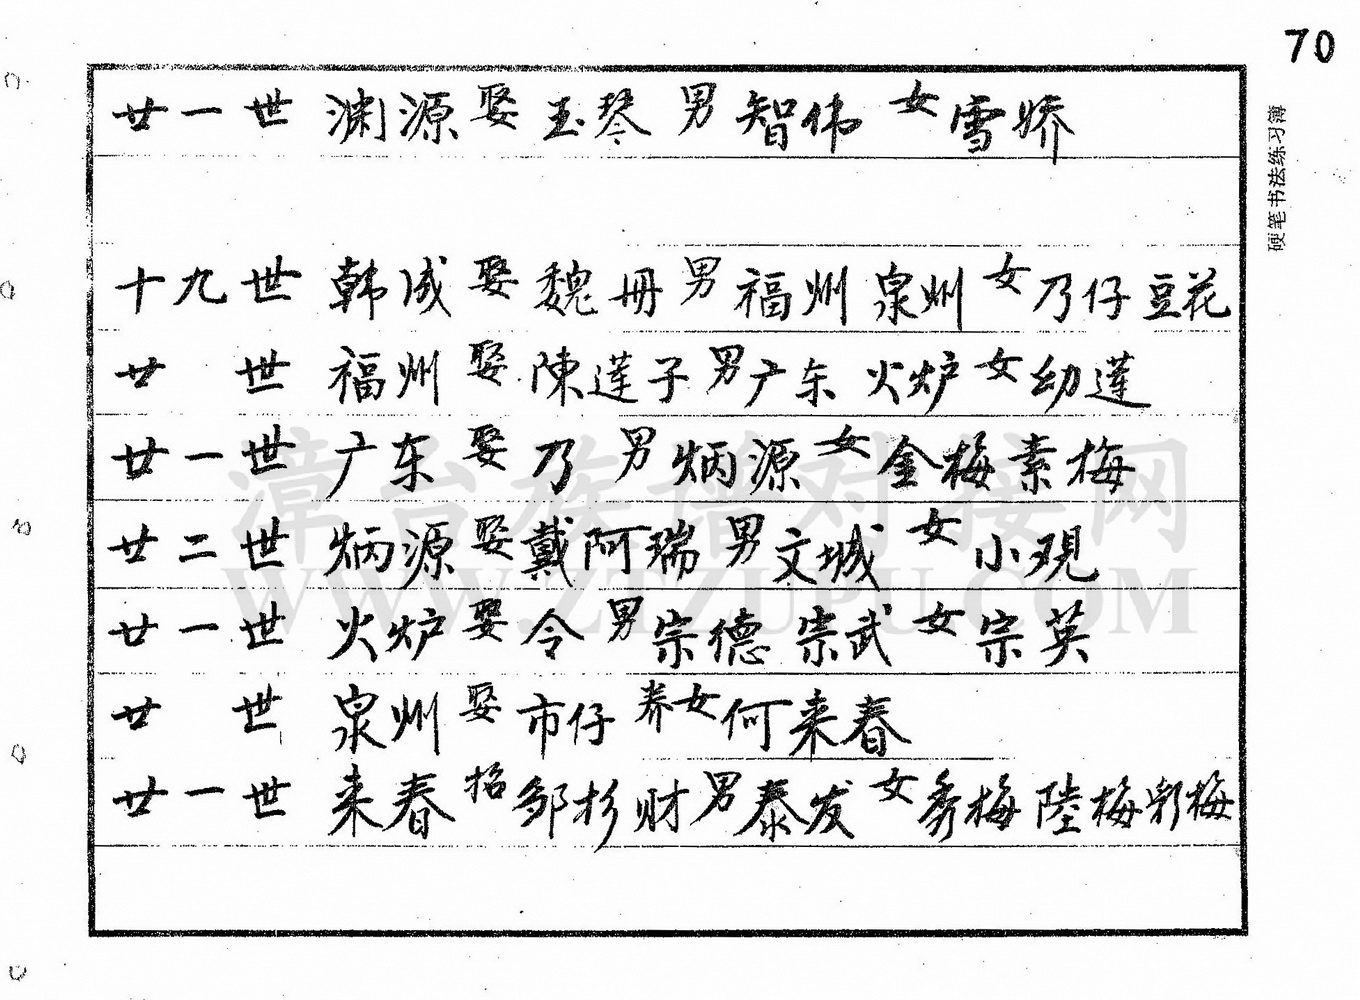 70
硬笔书法练习薄
廿一世 渊源 娶 玉琴 男 智伟 女 雪娇
十九世 韩成 娶 魏册 男 福州 泉州 女 乃仔 豆花
廿 世 福州 娶 陳莲子 男 广东 火炉 女 幼莲
廿一世 广东 娶 乃 男 炳源 女 金梅 素梅
廿二世 炳源 娶 戴阿瑞 男 文城 女 小观
廿一世 火炉 娶 令 男 宗德 崇武 女 宗英
廿 世 泉州 娶 市仔 养女 何来春
廿一世 来春 招 邹杉财 男 泰发 女 秀梅 陸梅 彩梅
漳台族谱对接网
WWW.ZTZUPU.COM